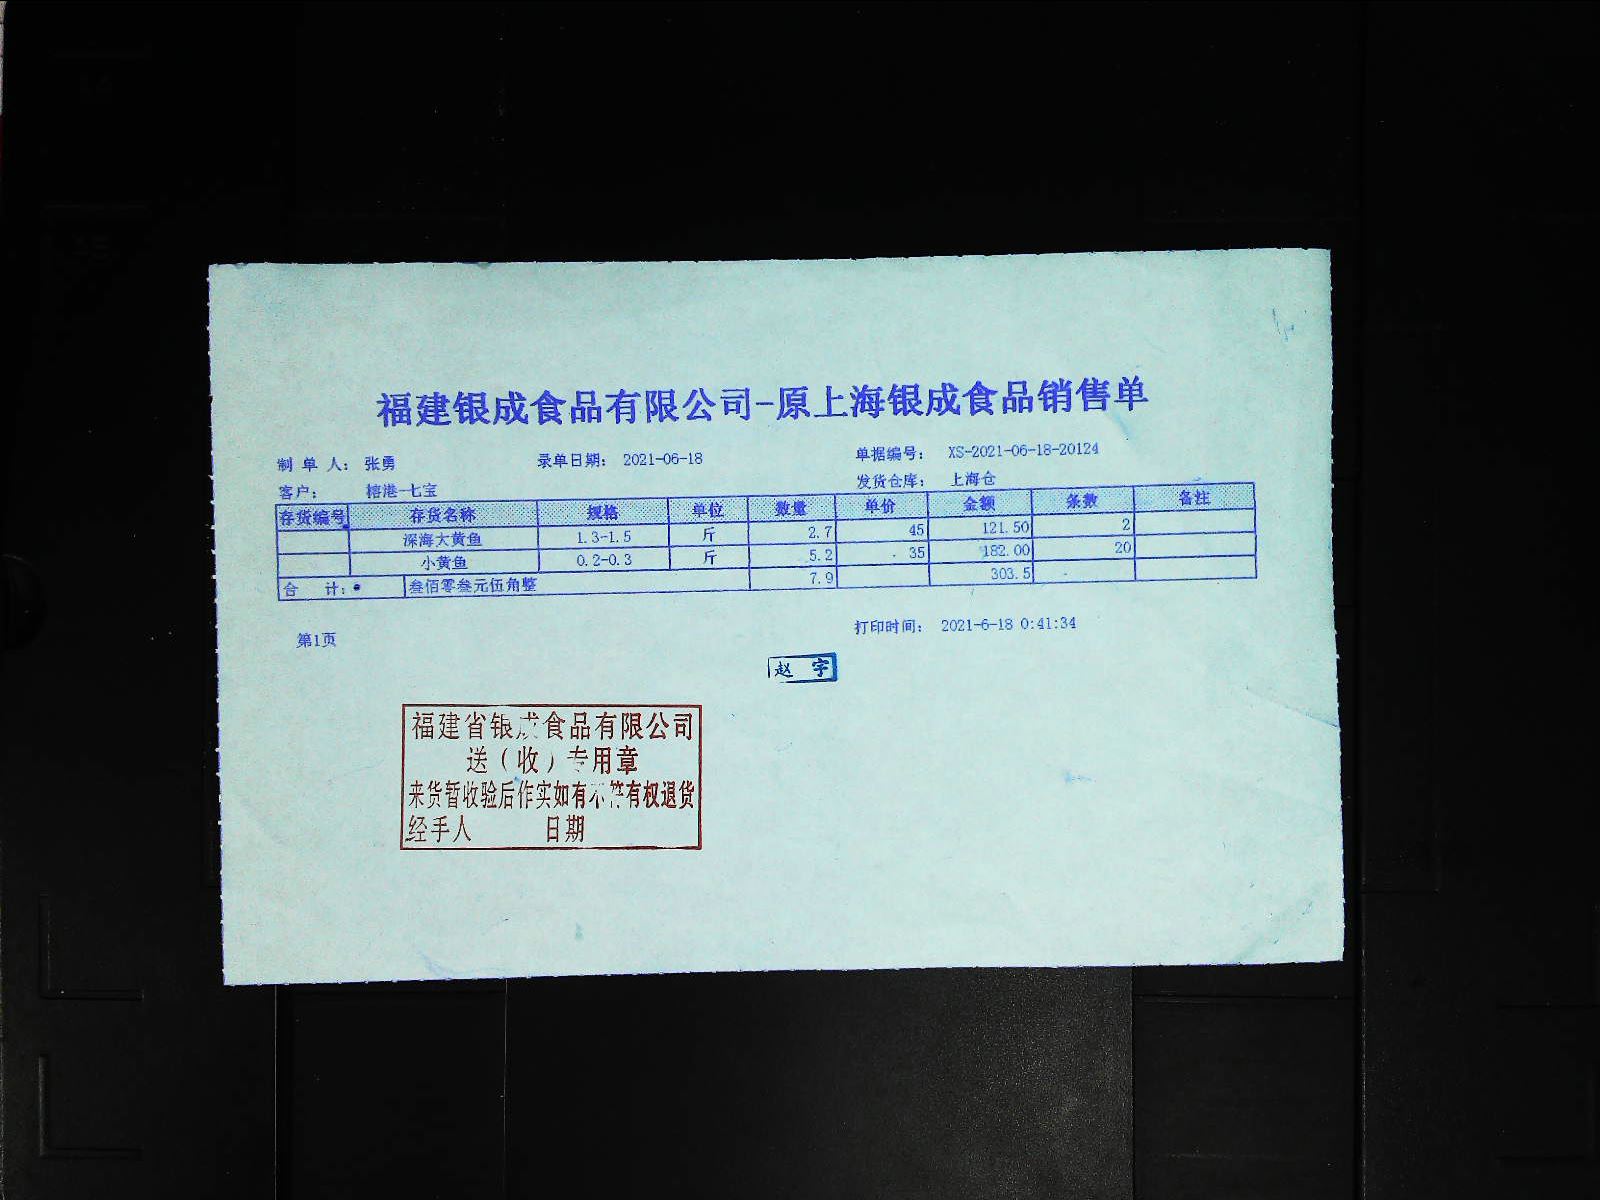 福建银成食品有限公司-原上海银成食品销售单
制 单 人： 张勇 录单日期： 2021-06-18 单据编号： XS-2021-06-18-20124
客户： 榕港-七宝 发货仓库： 上海仓
存货编号 存货名称 规格 单位 数量 单价 金额 条数 备注
深海大黄鱼 1.3-1.5 斤 2.7 45 121.50 2
小黄鱼 0.2-0.3 斤 5.2 35 182.00 20
合 计： 叁佰零叁元伍角整 7.9 303.5
第1页 打印时间： 2021-6-18 0:41:34
赵 宇
福建省银成食品有限公司
送（收）专用章
来货暂收验后作实如有不符有权退货
经手人 日期